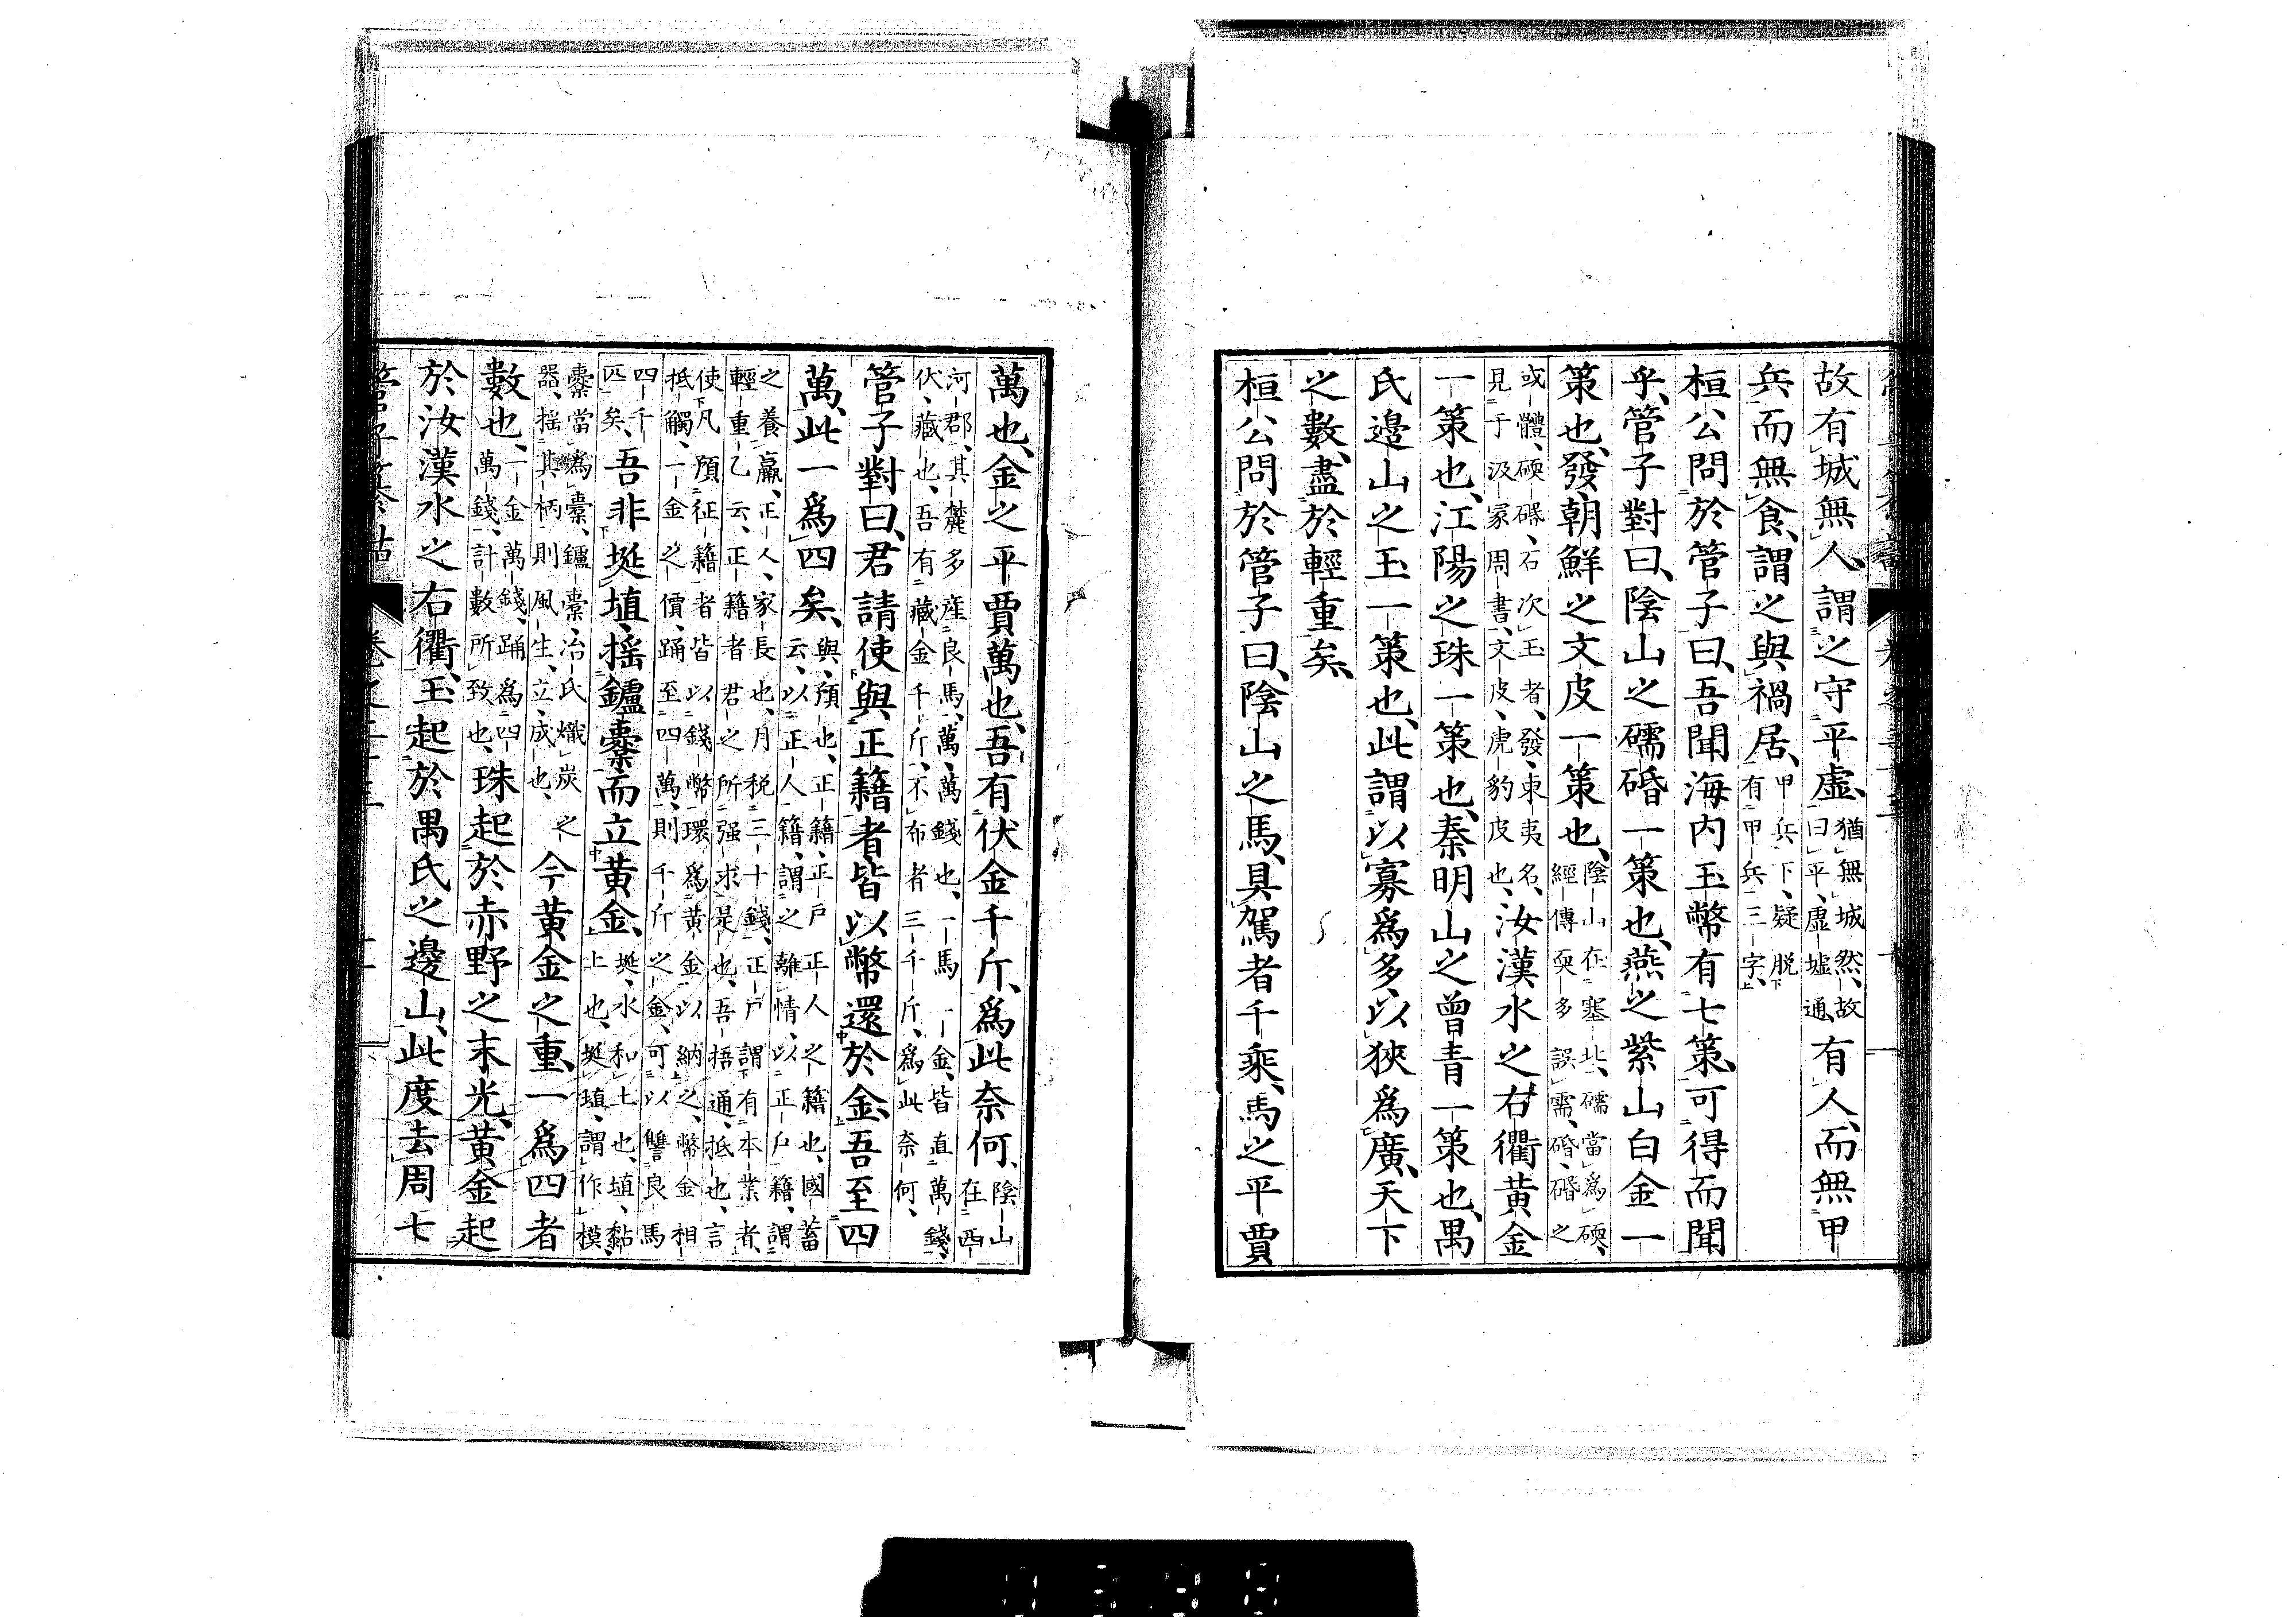 故有城無人、謂之守平虛、猶無城然、故曰平虛、墟通、有人、而無甲
兵而無食、謂之與禍居、甲兵下、疑脫有甲兵三字、
桓公問於管子曰、吾聞海内玉幣有七筴、可得而聞
乎、管子對曰、陰山之礝碈一筴也、燕之紫山白金一
筴也、發、朝鮮之文皮一筴也、陰山在塞北、礝當爲碝、經傳耎多誤需、碈、碈之
或體、碝碈、石次玉者、發、東夷名、見于汲冢周書、文皮、虎豹皮也、汝漢水之右衢黄金
一筴也、江陽之珠一筴也、秦明山之曾青一筴也、禺
氏邊山之玉一筴也、此謂以寡爲多、以狹爲廣、天下
之數、盡於輕重矣、
桓公問於管子曰、陰山之馬、具駕者千乘、馬之平賈
萬也、金之平賈萬也、吾有伏金千斤、爲此奈何、陰山在西
河郡、其麓多產良馬、萬、萬錢也、一馬一金、皆直萬錢、伏、藏也、吾有藏金千斤、不布者三千斤、爲此奈何、
管子對曰、君請使與正籍者、皆以幣還於金、吾至四
萬、此一爲四矣、與、預也、正籍、正戶正人之籍也、國蓄云、以正人籍、謂之離情、以正戶籍、謂
之養贏、正人、家長也、月稅三十錢、正戶謂有本業者、輕重乙云、正籍者君之所强求是也、吾捂通、抵也、言
使凡預征籍者皆以錢幣環爲黄金以納之、幣金相抵觸、一金之價、踊至四萬、則千斤之金、可以讐良馬
四千匹矣、吾非埏埴、搖鑪櫜而立黄金、埏、水和土也、埴、黏土也、埏埴、謂作模、
櫜當爲橐、鑪橐、冶氏熾炭之器、搖其柄則風生、立、成也、今黄金之重、一爲四者
數也、一金萬錢、踊爲四萬錢、計數所致也、珠起於赤野之末光、黄金起
於汝漢水之右衢、玉起於禺氏之邊山、此度去周七